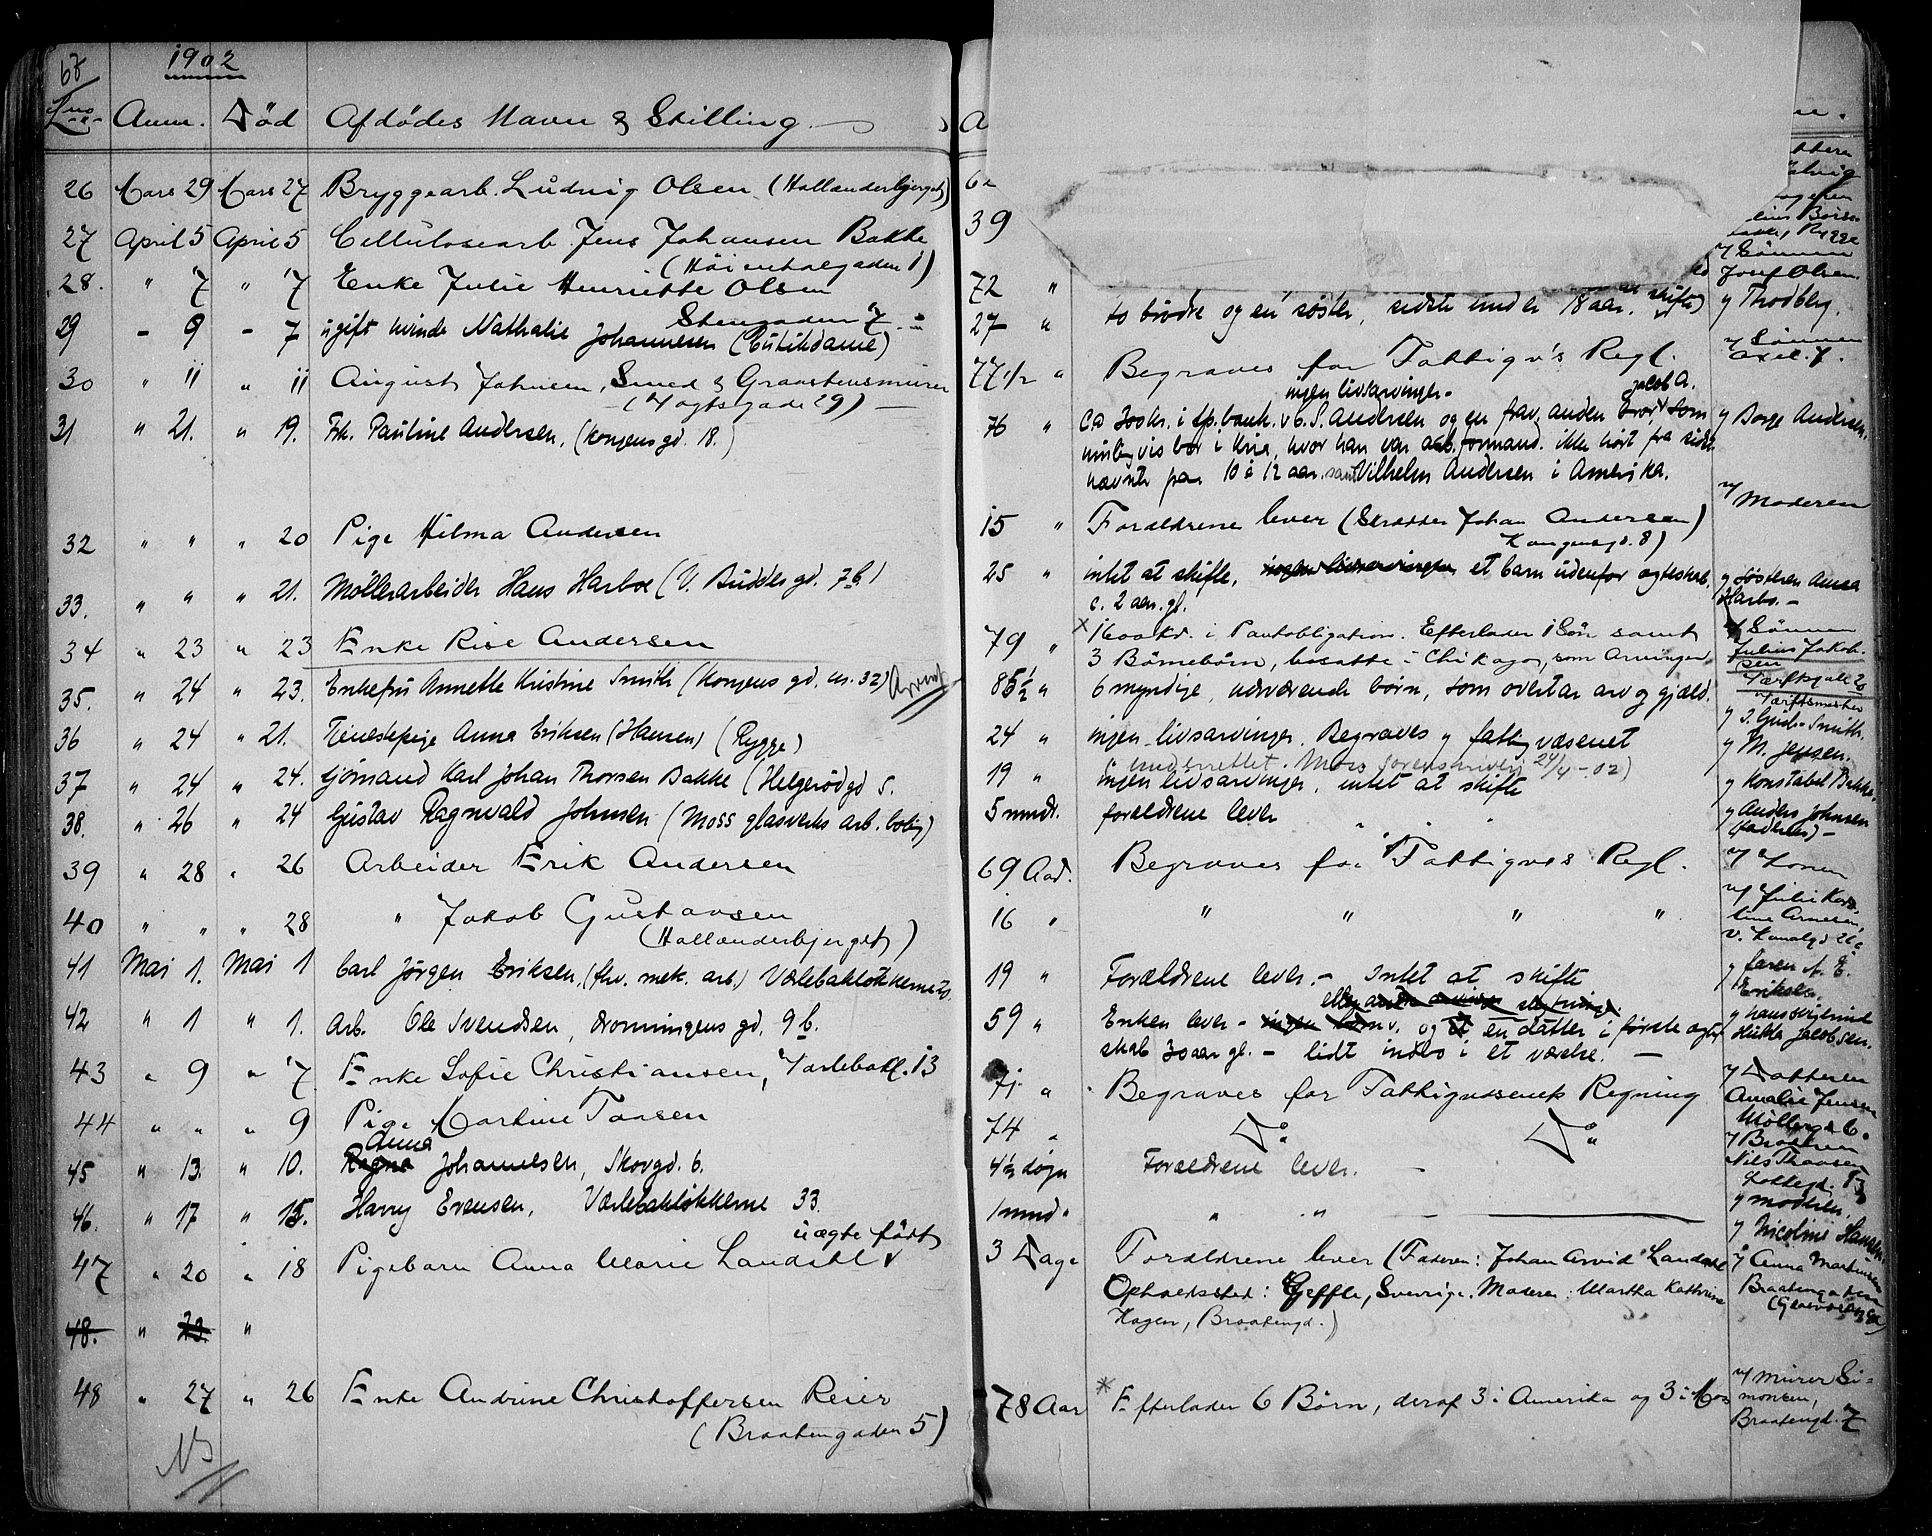 67
1902
Lno Anm. Død Afdødes Navn & Stilling
26 Mars 29 Mars 27 Bryggearb. Ludvig Olsen (Hollænderbjerget)
27 April 5 April 5 Cellulosearb. Jens Johansen Bakke 39
(Höienhalgaden 1)
28. " 7 " 7 Enke Julie Henriette Olsen 72 "
y Sönnen
Josef Olsen.
Stengaden 7.
29 - 9 - 7 ugift kvinde Nathalie Johannesen (Butikdame) 27 " to brødre og en søster, sidste under 18 aar. skifte y Thodberg.
30 " 11 " 11 August Johnsen, Smed & Graastensmurer 77 1/2 " Begraves for Fattigv's Regl. y Sønnen
Axel J.
(Vogtsgade 29)
ingen livsarvinger.
Jacob A.
31 " 21. " 19. Frk. Pauline Andersen, (Kongens gd. 18.) 76 " ca 300 kr. i Sp.bank. v C. S. Andersen og en frav. anden bror, som y Borge Andersen.
muligvis bor i Kria, hvor han var arb.formand. ikke hørt fra sidst
nævnte paa 10 à 12 aar. samt Vilhelm Andersen i Amerika.
32 " " " 20 Pige Hilma Andersen 15 " Forældrene lever (Skrædder Johan Andersen) y Moderen
Kongensgd. 8)
33. " " " 21. Møllerarbeider Hans Harboe (V. Buddes gd. 7b.) 25 " intet at skifte, ingen livsarvinger et barn udenfor ægteskab y søsteren Anna
c. 2 aar. gl. Harbo. -
34 " 23 " 23 Enke Rise Andersen 79 " x 1600 kr. i Pantobligation. Efterlader 1 Søn samt y Sönnen
3 Börnebörn, bosatte i Chikago, som Arvinger Julius Jakobsen
35. " 24 " 23. Enkefru Annette Kristine Smith (Kongens gd. nr. 32) 85 1/2 " 6 myndige, nærværende børn, som overtar arv og gjæld. y T. Gude Smith.
36 " 24 " 21. Tjenestepige Anna Eriksen (Hansen) (Rygge) 24 " ingen livsarvinger. Begraves y fattigvæsenet y M. Jensen.
underrettet Moss Sorenskriver 24/4-02)
37 " 24 " 24. Sjømand Karl Johan Thorsen Bakke (Helgerødgd 5. 19 " ingen livsarvinger, intet at skifte y Konstabel Bakke.
38. " 26 " 24 Gustav Ragnvald Johnsen (Moss glasverks arb. bolig) 5 mndr. forældrene lever y Anders Johnsen
(faderen) -
39 " 28 " 26 Arbeider Erik Andersen 69 Aar. Begraves for Fattigvæs Regl. y Konen
40 " " " 28 " Jakob Gustavsen 16 " " " " " y Julie Karoline Arnesen,
(Hollænderbjerget) v. Kanalgd 26
41 Mai 1. Mai 1 Carl Jörgen Eriksen, (fhv. mek. arb.) Værlebakløkkerne 19 " Forældrene lever. - Intet at skifte y faren A. E.
Eriksen.
42 " 1 " 1. Arb. Ole Svendsen, Dronningens gd. 9 b. 59 " Enken lever - ingen børn, og et en datter i første ægteskab 30 aar gl. - lidt indbo i et værelse. - y husbestyrerinde
Hulda Jacobsen.
43 " 9 " 7 Enke Sofie Christiansen, Varlebakl. 13 71. " Begraves for Fattigvæsenets Regning y Datteren
Amalie Jensen
Möllerg. 6.
44 " " " 9 Pige Martine Taasen 74 " Do Do y Broderen
Nils Thaasen
Anna
45 " 13. " 10. Ragna Johannesen, Skovgd. 6. 4 1/2 døgn Forældrene lever. y moderen.
46. " 17 " 15. Harry Evensen, Værlebakløkkerne 33. 1 mnd. " " y Nicoline Hansen
uægte født
47 " 20 " 18 Pigebarn Anna Marie Landahl 3 Dage Forældrene lever (Faderen: Johan Arvid Landahl y Anna Martinsen
Opholdssted: Geffle, Sverige. Moderen: Martha Kathrine Braatengaden
Hagen, Braatengd.)
48. " 23. "
48 " 27 " 26 Enke Andrine Christoffersen Reier 78 Aar * Efterlader 6 Börn, deraf 3 i Amerika og 3 i Moss y Murer Simonsen,
(Braatengaden 5) Braatengd. 7
NB